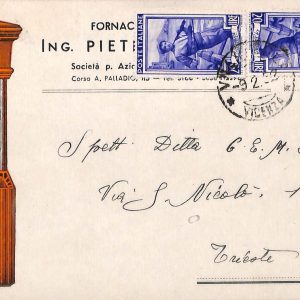 FORNAC
ING. PIET
Società p. Azi
Corso A. PALLADIO, 113 - Tel.
POSTE ITALIANE
LIRE 20
VICENZA
Spett. Ditta C.E.M.
Via S. Nicolò, 1
Trieste